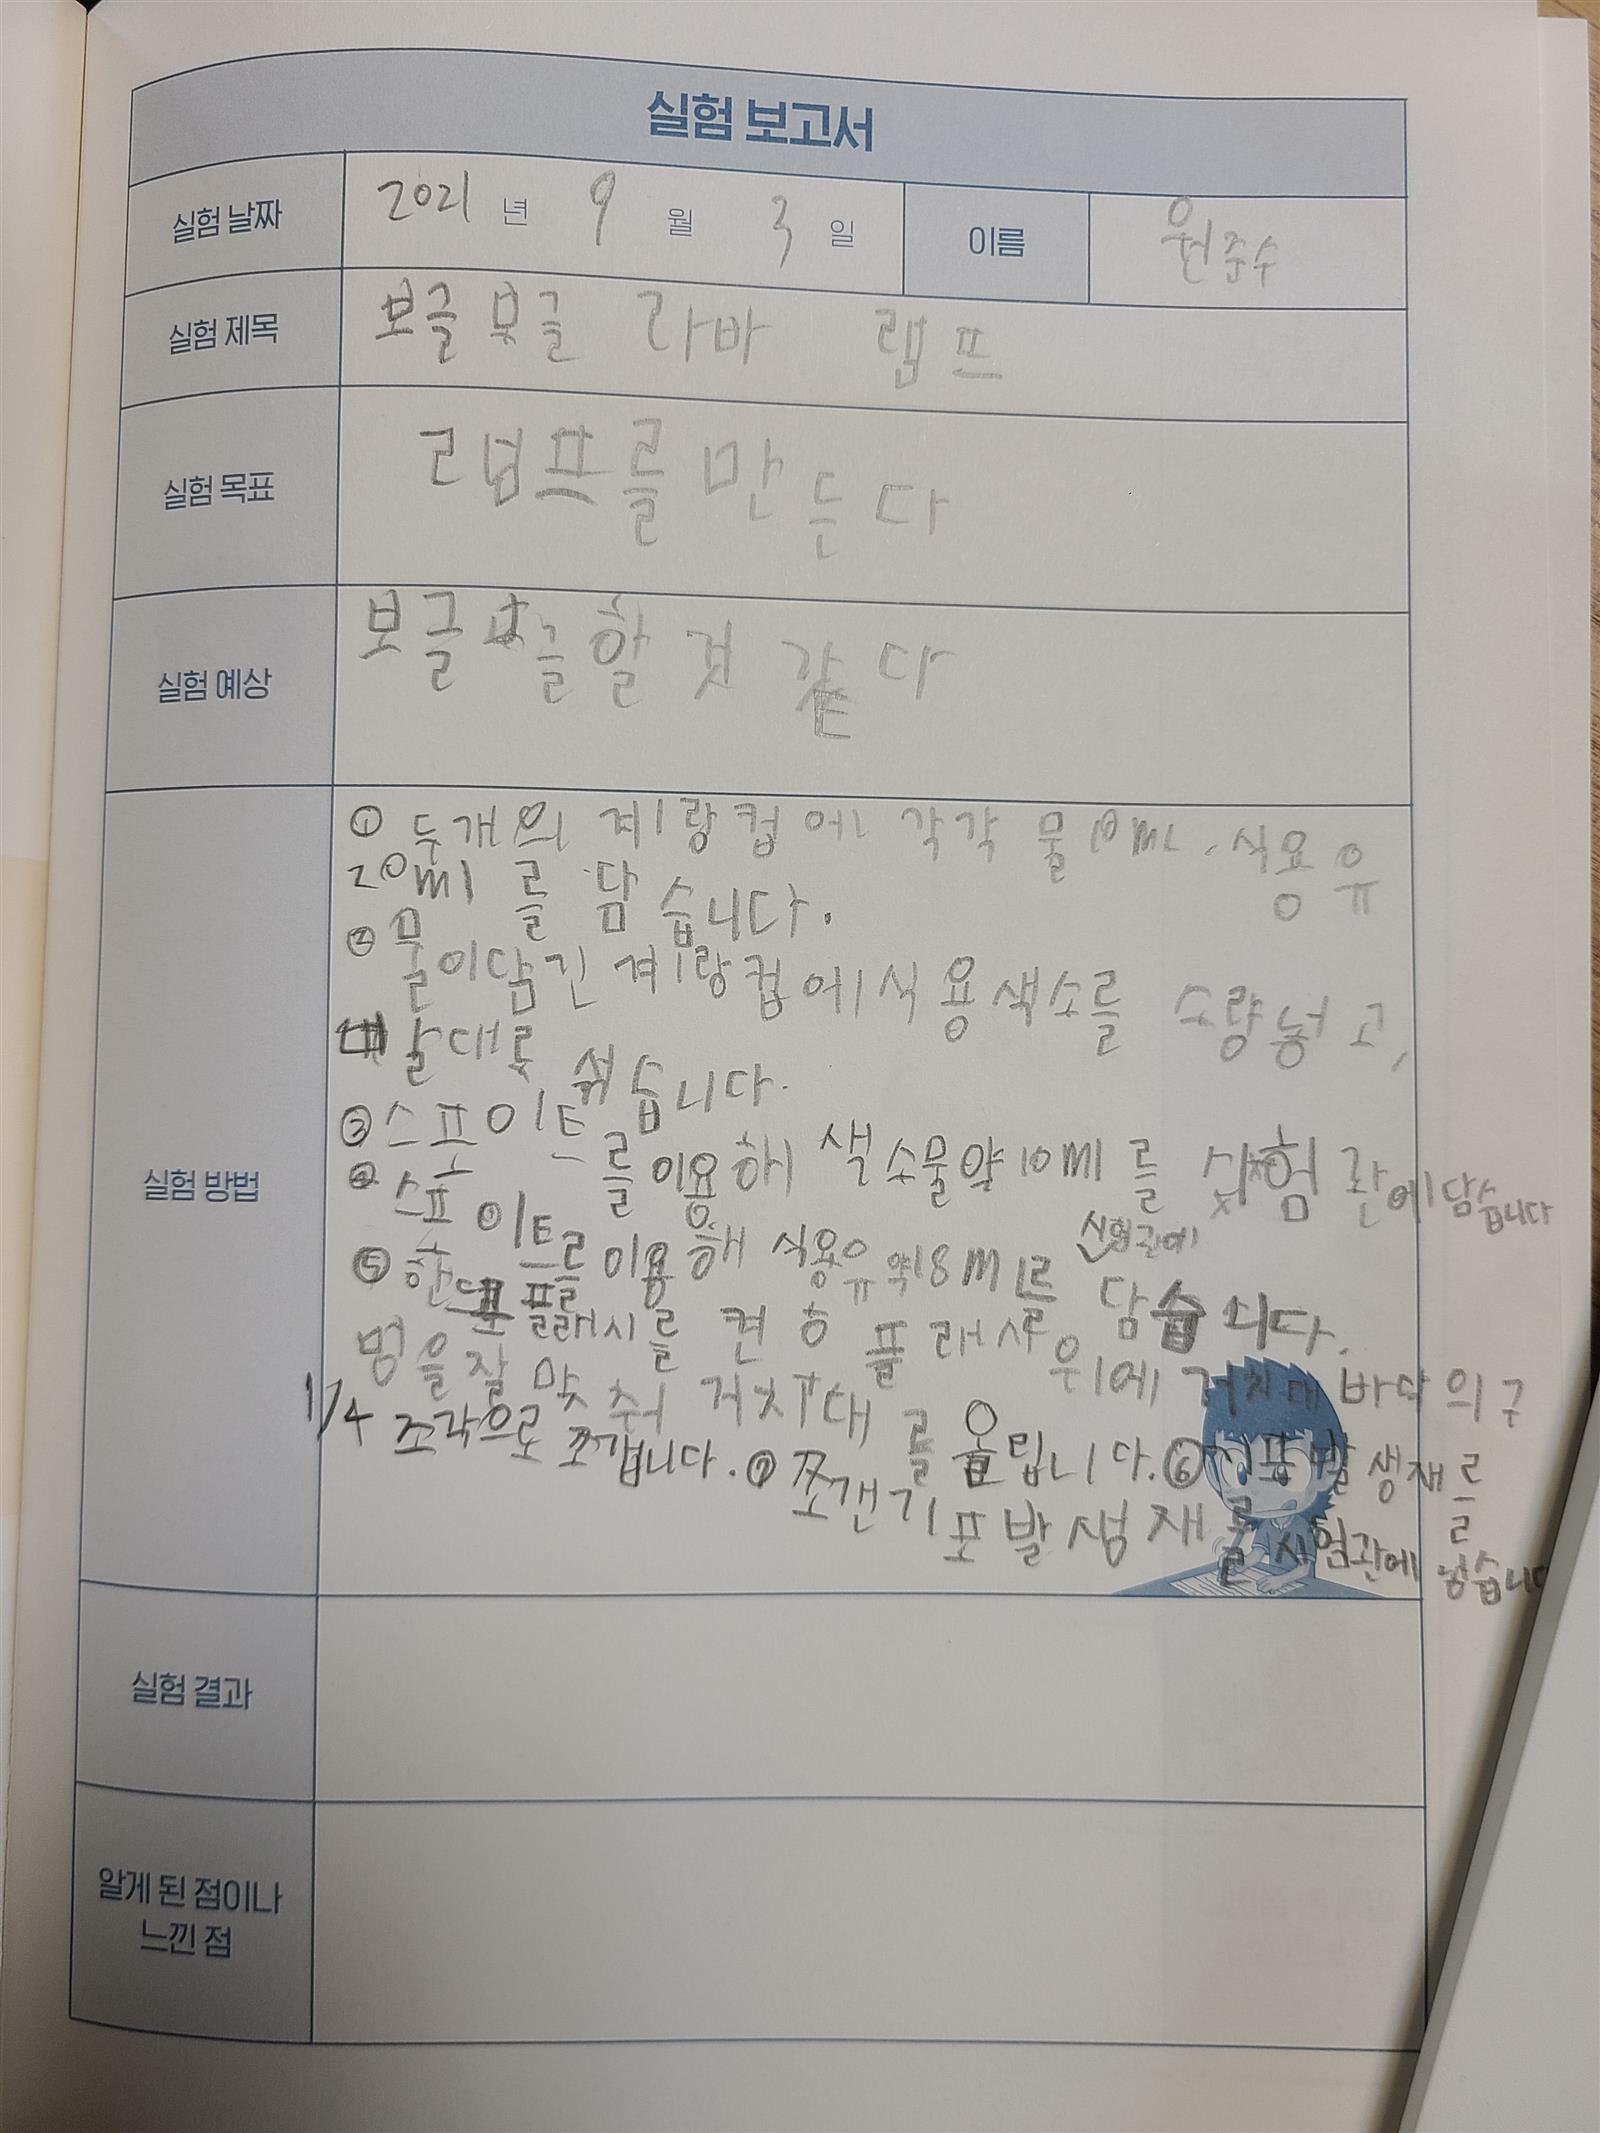 실험 보고서
실험 날짜 2021 년 9 월 3 일 이름 원준수
실험 제목 보글 보글 라바 램프
실험 목표 램프를 만든다
실험 예상 보글 보글 할 것 같다
실험 방법
① 두개의 계량컵에 각각 물 10ml, 식용유
20ml를 담습니다.
② 물이 담긴 계량컵에 식용색소를 소량 넣고,
막대로 섞습니다.
③ 스포이트를 이용해 색소물 약 10ml를 시험관에 담습니다
④ 스포이트를 이용해 식용유 약 18ml를 시험관에 담습니다.
⑤ 핸드폰 플래시를 켠 후 플래시 위에 거치대 바닥의 구
멍을 잘 맞춰 거치대를 올립니다. ⑥ 기포발생재를
1/4 조각으로 쪼갭니다. ⑦ 쪼갠 기포발생재를 시험관에 넣습니다
실험 결과
알게 된 점이나
느낀 점